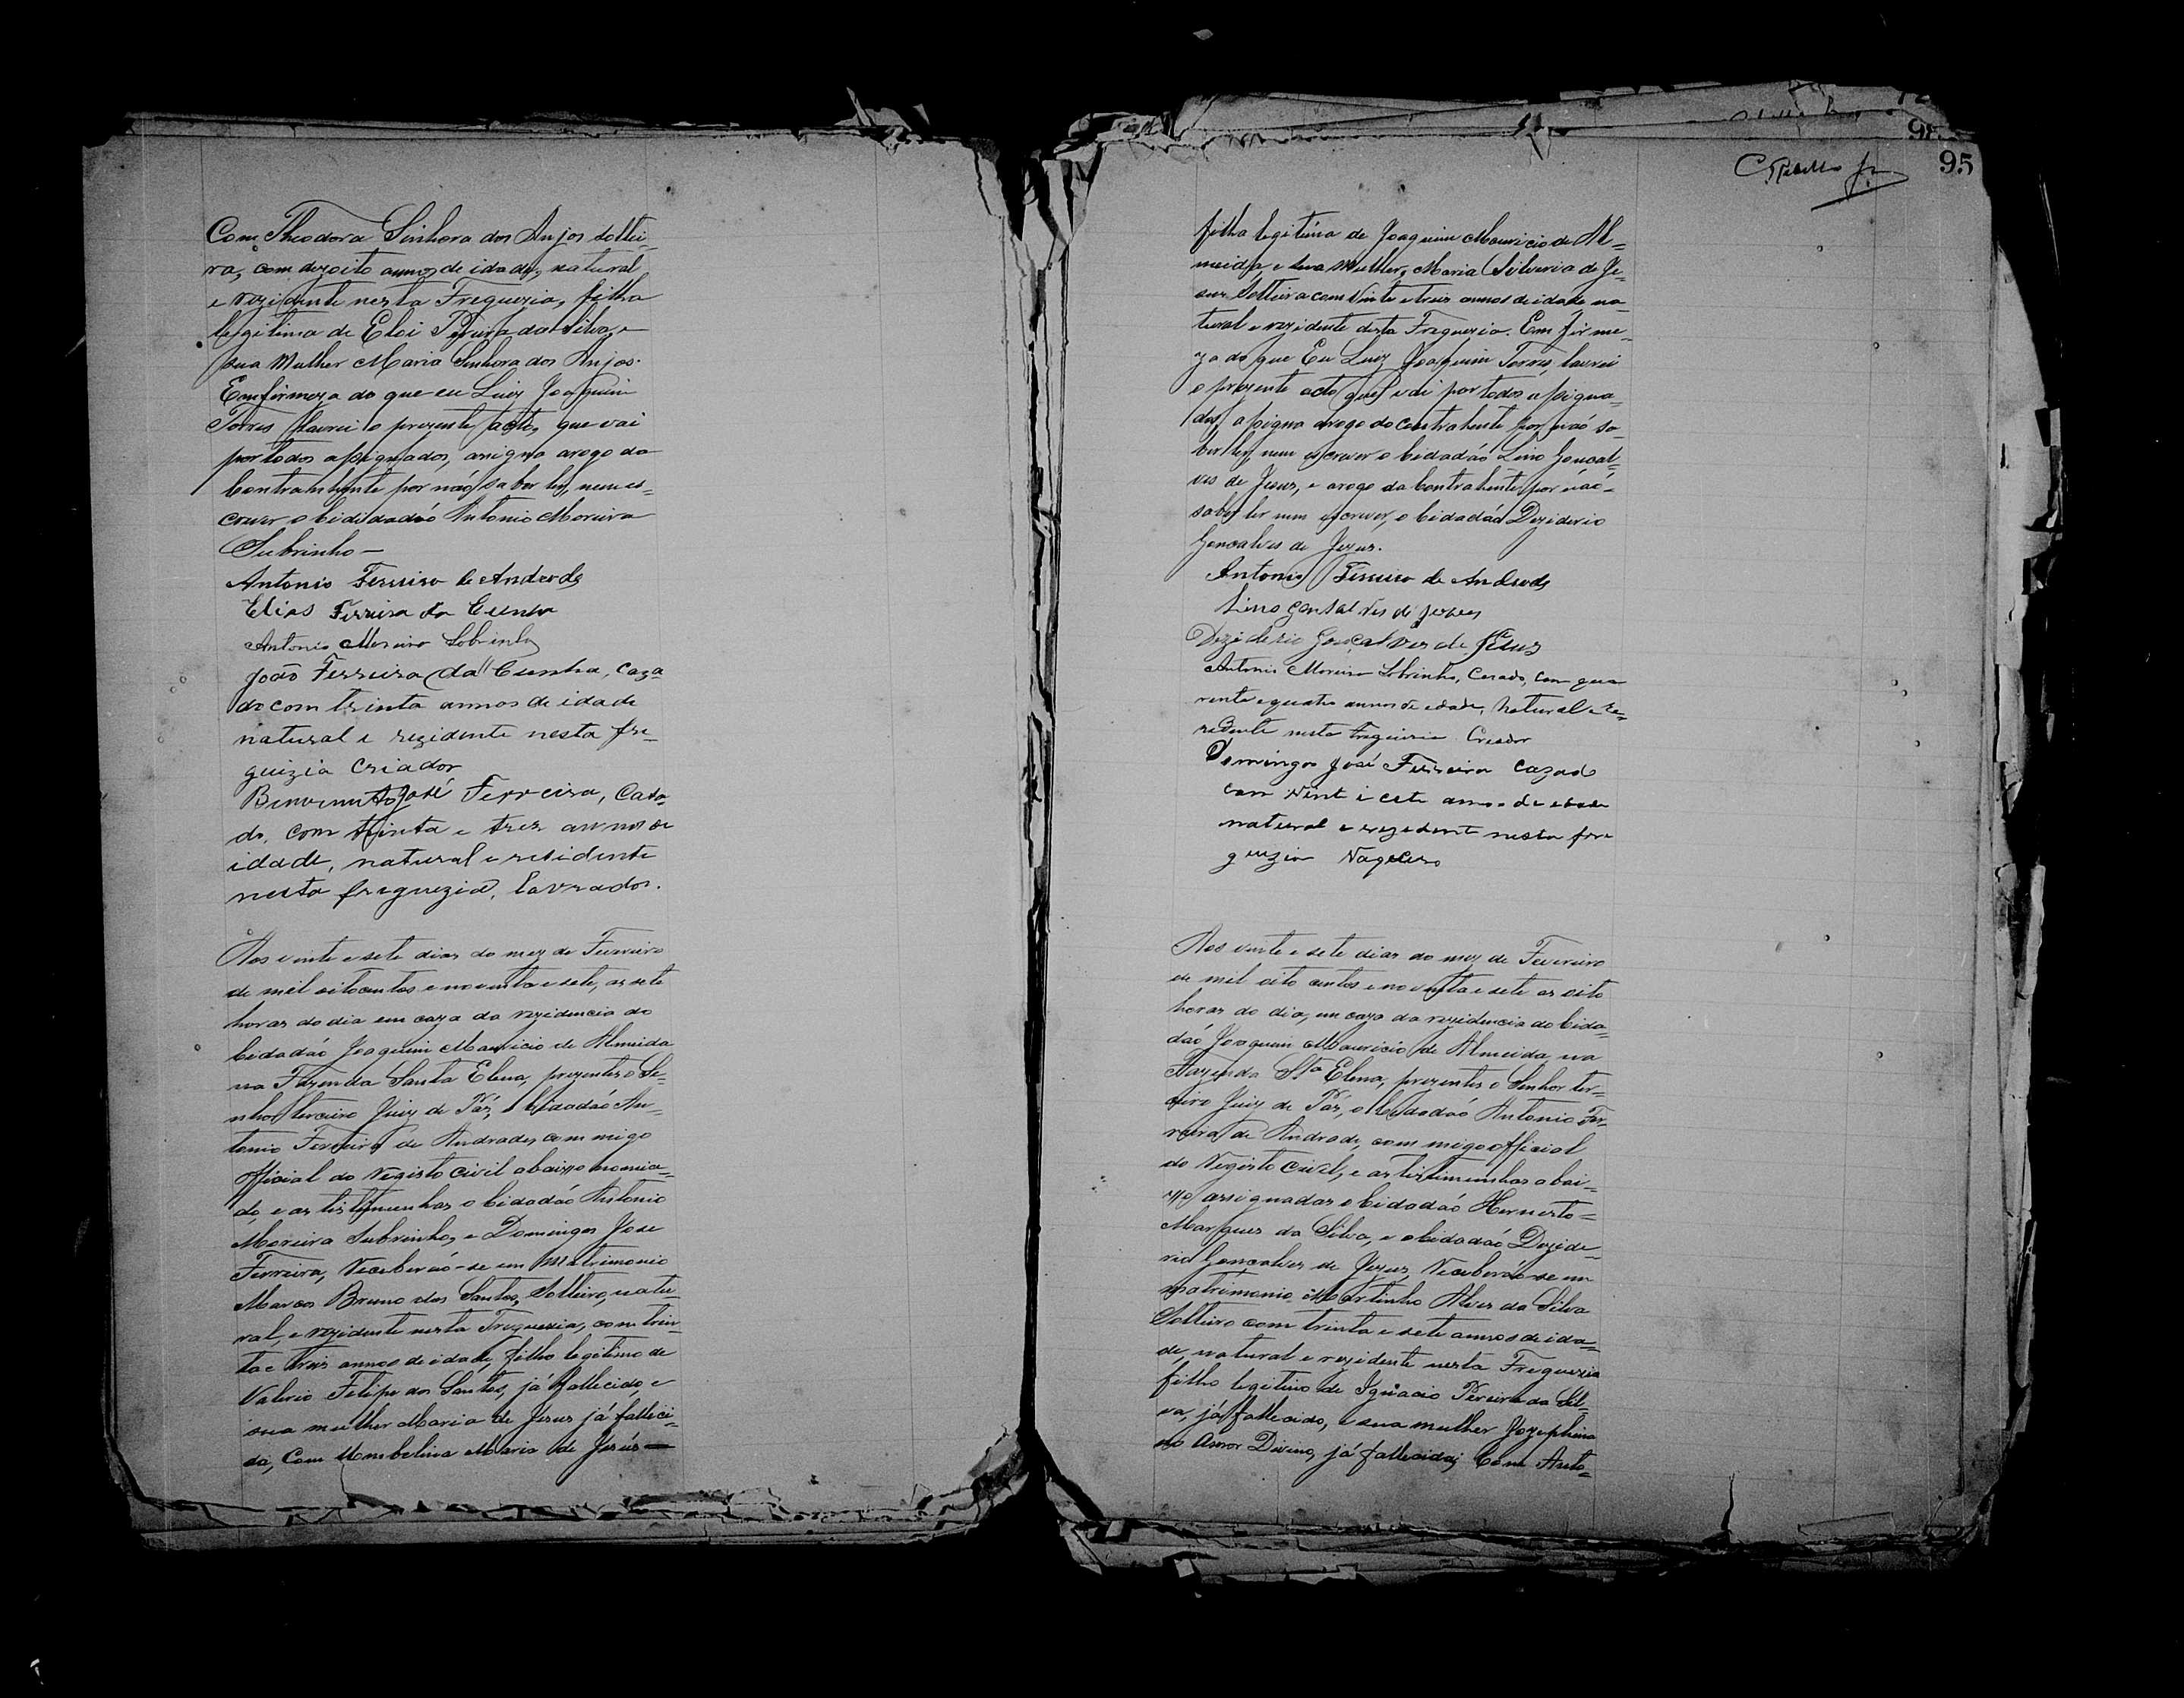 Com Theodora Sinhora dos Anjos soltei-
ra, com dezoito annos de idade, natural
e rezidente nesta Freguezia, filha
legitima de Eloi Pereira da Silva, e
sua Mulher Maria Sinhora dos Anjos.
Em firmeza do que eu Luiz Joaquim
Torres lavrei o prezente acto, que vai
por todos assignados, asigna arogo da
Contrahente por não saber ler, nem es-
crever o Cididadão Antonio Moreira
Subrinho—
Antonio Ferreira de Andrade
Elias Ferreira da Cunha
Antonio Moreira Sobrinho
João Ferreira da Cunha, caza
do com trinta annos de idade
natural e rezidente nesta fre-
guizia criador
Binvenuto José Ferreira, Caza-
do, com trinta e tres annos de
idade, natural e residente
nesta freguezia, lavrador.
Aos vinte e sete dias do mez de Fevereiro
de mil oitocentos e noventa e sete, as sete
horas do dia em caza da rezidencia do
Cidadão Joaquim Mauricio de Almeida
na Fazenda Santa Elena, prezentes o Se-
nhor terceiro Juiz de Páz, o Cidadão An-
tonio Ferreira de Andrade, com migo
official do Registo civil abaixo nomia-
do, e as tistemunhas o Cidadão Antonio
Moreira Subrinho, e Domingos Jose
Ferreira, Receberão-se em Matrimonio
Marcos Bruno dos Santos, Solteiro, natu-
ral, e rezidente nesta Freguezia, com trin-
ta e treis annos de idade, filho legitimo de
Valerio Felipe dos Santos, já fallecido, e
sua mulher Maria de Jesus já falleci-
da, Com Umbelina Maria de Jesús—
C. Rebello Jr.
98
95
filha legitima de Joaquim Mauricio de Al-
meida, e sua Mulher, Maria Silveria de Je-
sus Solteira com Vinte e treis annos de idade na-
tural e rezidente desta Freguezia. Em firme-
za do que Eu Luiz Joaquim Torres, lavrei
o prezente acto que vai por todos assigna-
dos, assigna arogo do Contrahente por não sa-
ber ler, nem escrever o Cidadão Lino Goncal-
ves de Jesus, e arogo da Contrahente por não-
saber ler nem escrever, o Cidadão Deziderio
Goncalves de Jezus.
Antonio Ferreira de Andrade
Lino Gonsalves de Jezus
Deziderio Gonçalves de Jesus
Antonio Moreira Sobrinho, Cazado, com qua
renta e quatro annos de edade, Natural e re-
zedente nesta freguizia Creador
Domingos José Ferreira Cazado
com Vint i cete annos de edade
natural e rezedente nesta fre
guezia Vaqueiro
Aos vinte e sete dias do mez de Fevereiro
de mil oito centos e noventa e sete as oito
horas do dia, em caza da rezidencia do Cida-
dão Joaquim Mauricio de Almeida, na
Fazenda Sta Elena, prezentes o Senhor ter-
ceiro Juiz de Páz, o Cidadão Antonio Fer-
reira de Andrade, com migo official
do Registo Civil, e as tistimunhas abai-
xo assignadas o Cidadão Hernesto-
Marques da Silva, e o Cidadão Dezide-
rio Goncalves de Jezus, Receberão-se em
matrimonio Martinho Alves da Silva
Solteiro com trinta e sete annos de ida-
de, natural e rezidente nesta Freguezia
filho legitimo de Ignacio Pereira da Sil-
va, já fallecido, e sua mulher Jozephina
do Amor Divino, já fallecida; Com Anto-